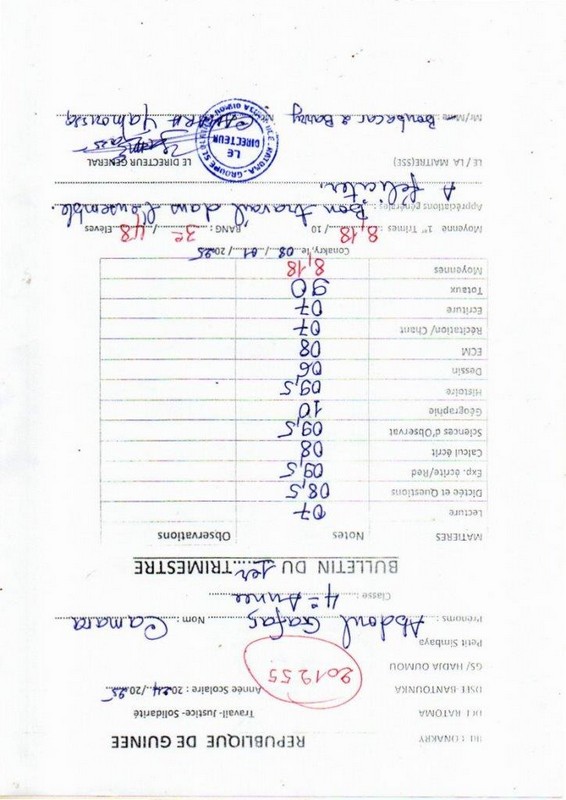 IRE CONAKRY REPUBLIQUE DE GUINEE
DCE RATOMA Travail- Justice- Solidarité
DSEE-BANTOUNKA Année Scolaire : 2024/2025
201255
GS/ HADJA OUMOU
Petit Simbaya
Prénoms : Abdoul Gafar Nom : Camara
Classe : 4e Année
BULLETIN DU 1er TRIMESTRE
MATIERES Notes Observations
Lecture 07
Dictée et Questions 08,5
Exp. écrite/Red 09,5
Calcul écrit 08
Sciences d'Observat 09,5
Géographie 10
Histoire 09,5
Dessin 06
ECM 08
Récitation/ Chant 07
Ecriture 07
Totaux 90
Moyennes 8,18
Conakry, le 08/01/2025
Moyenne 1er Trimes : 8,18/10 RANG : 3e/48 Elèves
Appréciations générales : Bon travail dans l'ensemble.
A féliciter.
LE / LA MAITRE(SSE) LE DIRECTEUR GENERAL
LE DIRECTEUR
Mr/Mme : Boubacar Barry